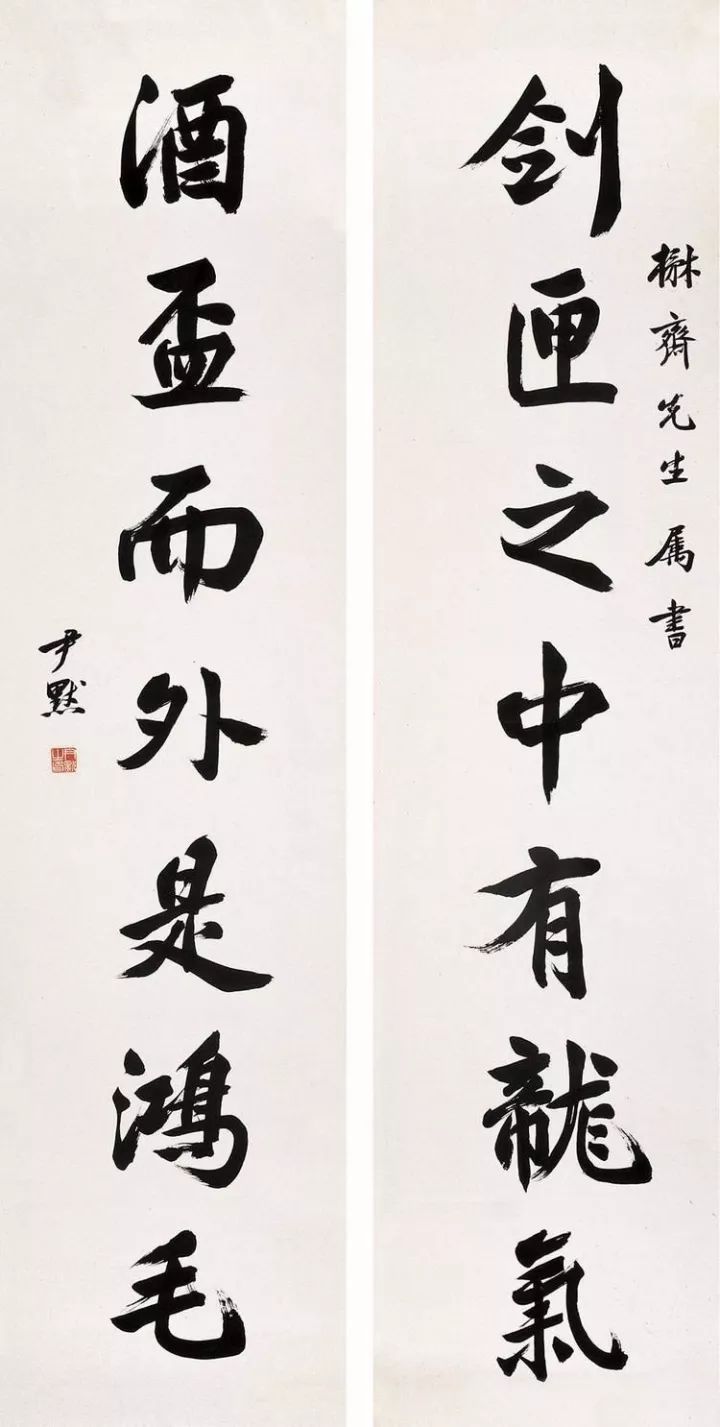 齊先生属書
剑匣之中有龍氣
酒盃而外是鴻毛
尹默